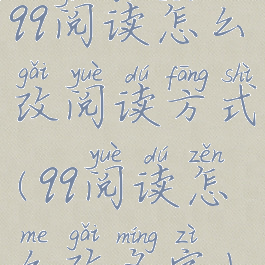 99阅读怎么
gǎi yuè dú fāng shì
改阅读方式
yuè dú zěn
(99阅读怎
me gǎi míng zì